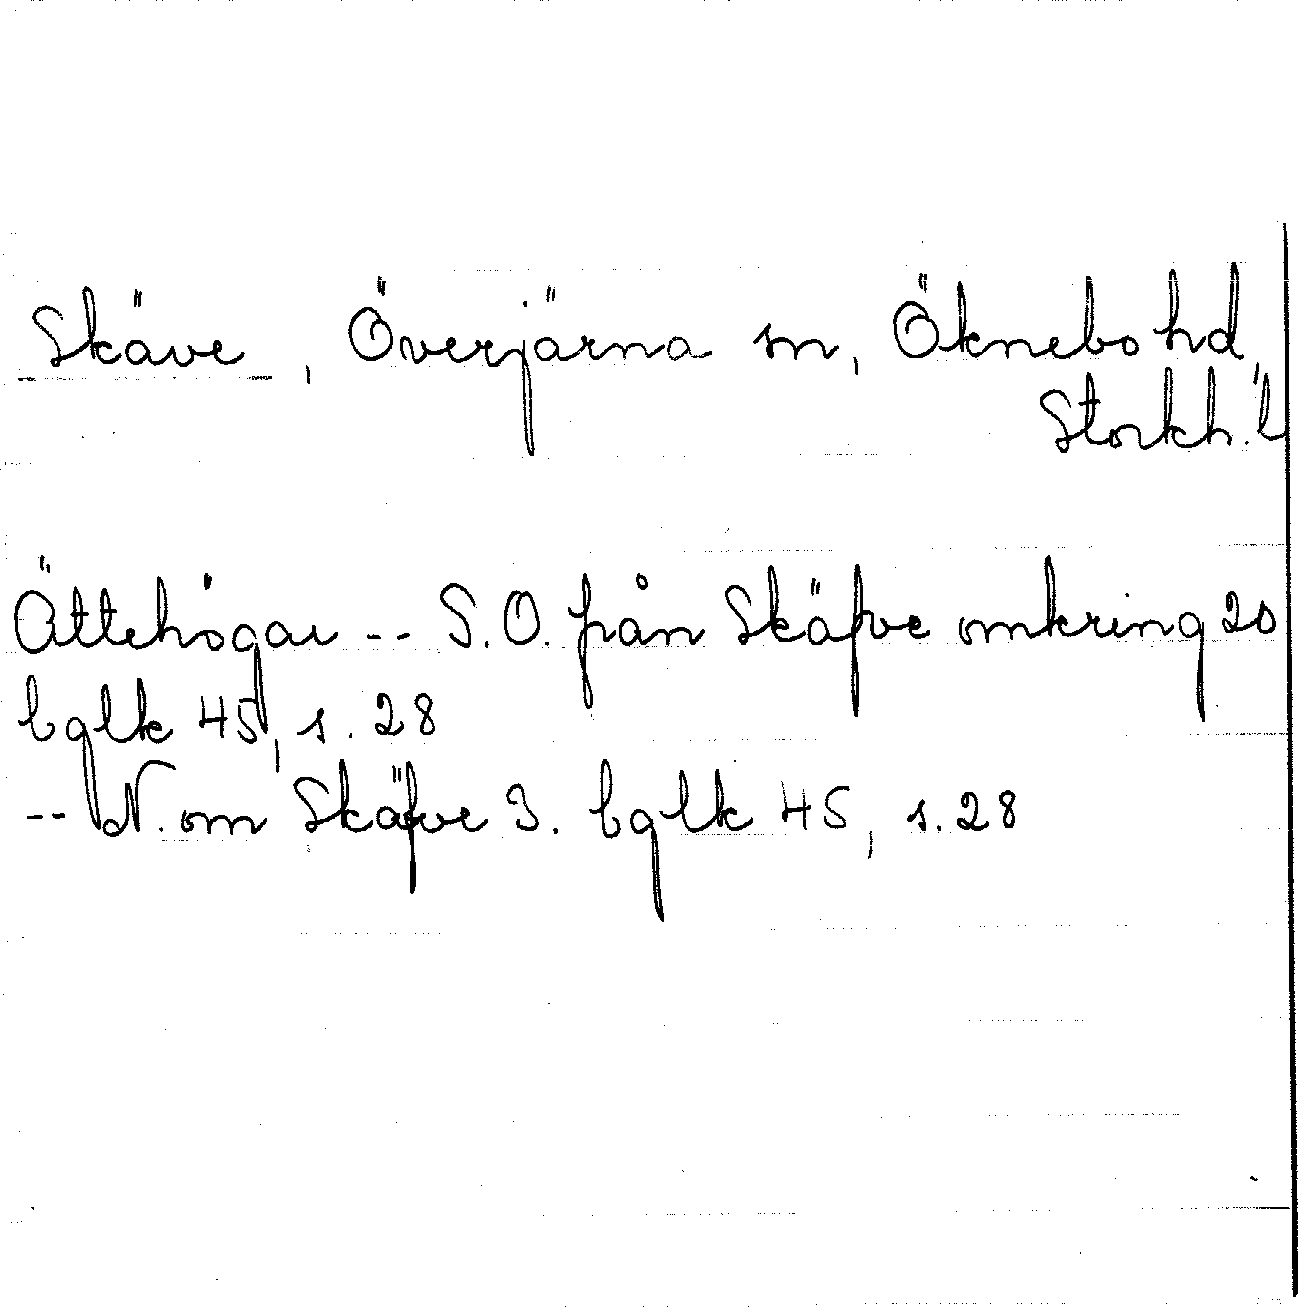 Skäve, Överjärna sn, Öknebo hd,
Stockh. l
Ättehögar -- S.O. från Skäfve omkring 20
bglk 45, s. 28
-- N. om Skäfve 3. bglk 45, s. 28